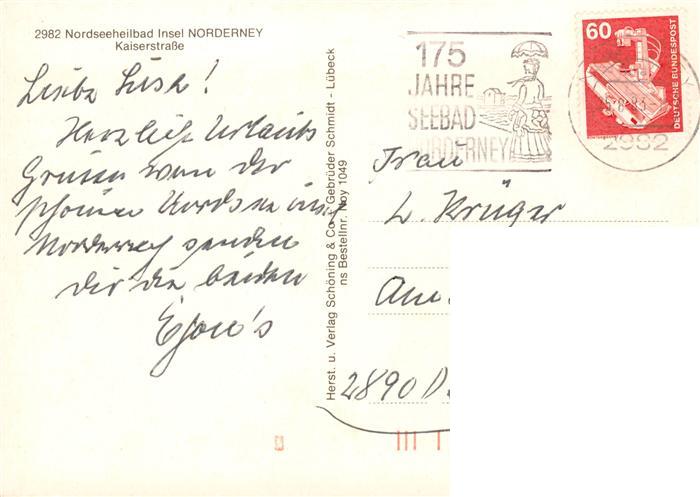 2982 Nordseeheilbad Insel NORDERNEY
Kaiserstraße
Liebe Lisa!
Herzliche Urlaubs
Grüsse von der
schönen Nordsee
Norderney senden
Dir die beiden
Egon's
Herst. u. Verlag Schöning & Co + Gebrüder Schmidt - Lübeck
ns Bestellnr. Noy 1049
175
JAHRE
SEEBAD
NORDERNEY
60
DEUTSCHE BUNDESPOST
2982
Frau
L. Krüger
Am
2890 D